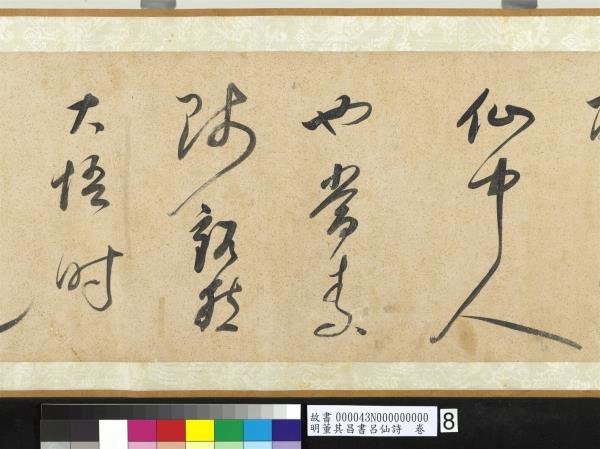 仙中人
也當
師豁然
大悟时
故書 000043N000000000
明董其昌書呂仙詩 卷
8